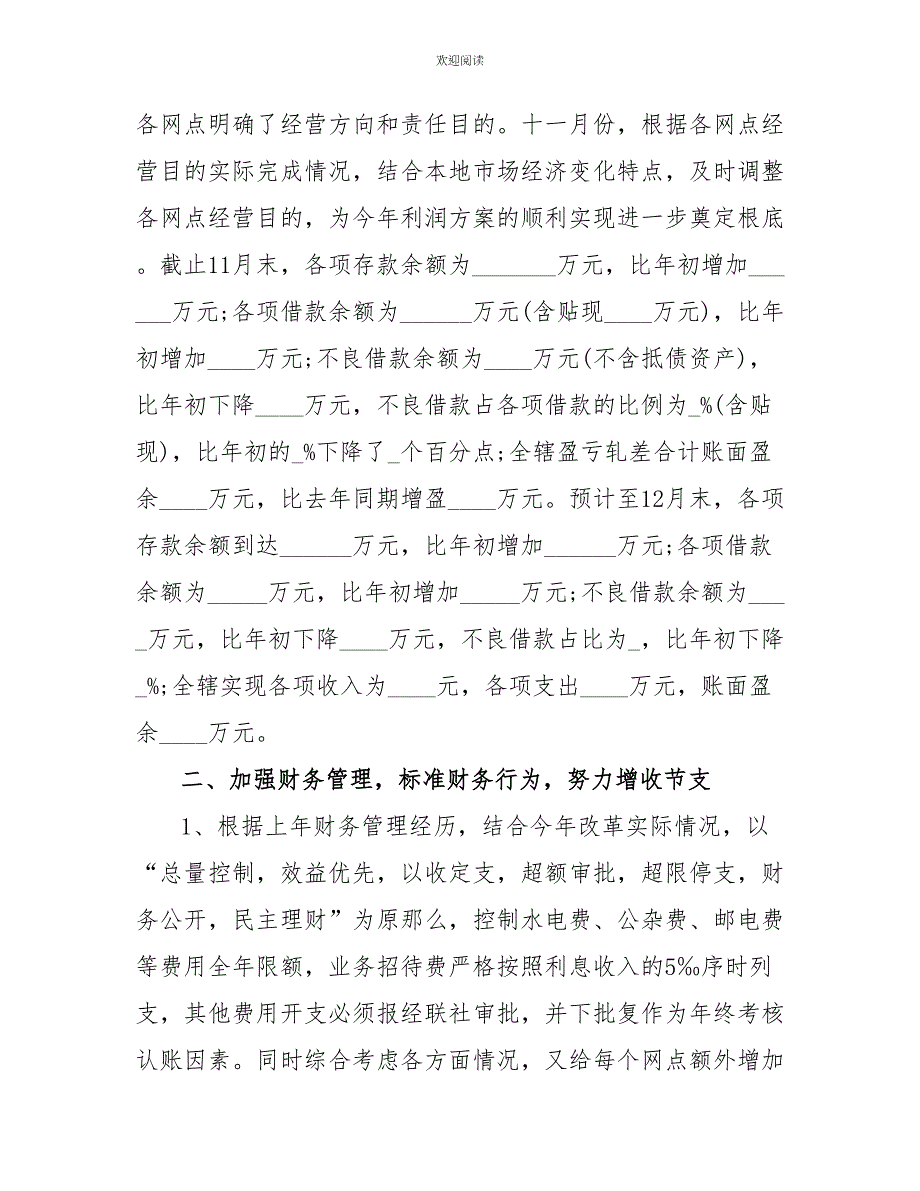 欢迎阅读
各网点明确了经营方向和责任目的。十一月份，根据各网点经
营目的实际完成情况，结合本地市场经济变化特点，及时调整
各网点经营目的，为今年利润方案的顺利实现进一步奠定根底
。截止11月末，各项存款余额为_______万元，比年初增加___
___万元;各项借款余额为______万元(含贴现____万元)，比年
初增加____万元;不良借款余额为____万元(不含抵债资产)，
比年初下降____万元，不良借款占各项借款的比例为_%(含贴
现)，比年初的_%下降了_个百分点;全辖盈亏轧差合计账面盈
余____万元，比去年同期增盈____万元。预计至12月末，各项
存款余额到达______万元，比年初增加______万元;各项借款
余额为_____万元，比年初增加_____万元;不良借款余额为___
_万元，比年初下降____万元，不良借款占比为_，比年初下降
_%;全辖实现各项收入为____元，各项支出____万元，账面盈
余____万元。
二、加强财务管理，标准财务行为，努力增收节支
1、根据上年财务管理经历，结合今年改革实际情况，以
“总量控制，效益优先，以收定支，超额审批，超限停支，财
务公开，民主理财”为原那么，控制水电费、公杂费、邮电费
等费用全年限额，业务招待费严格按照利息收入的5‰序时列
支，其他费用开支必须报经联社审批，并下批复作为年终考核
认账因素。同时综合考虑各方面情况，又给每个网点额外增加